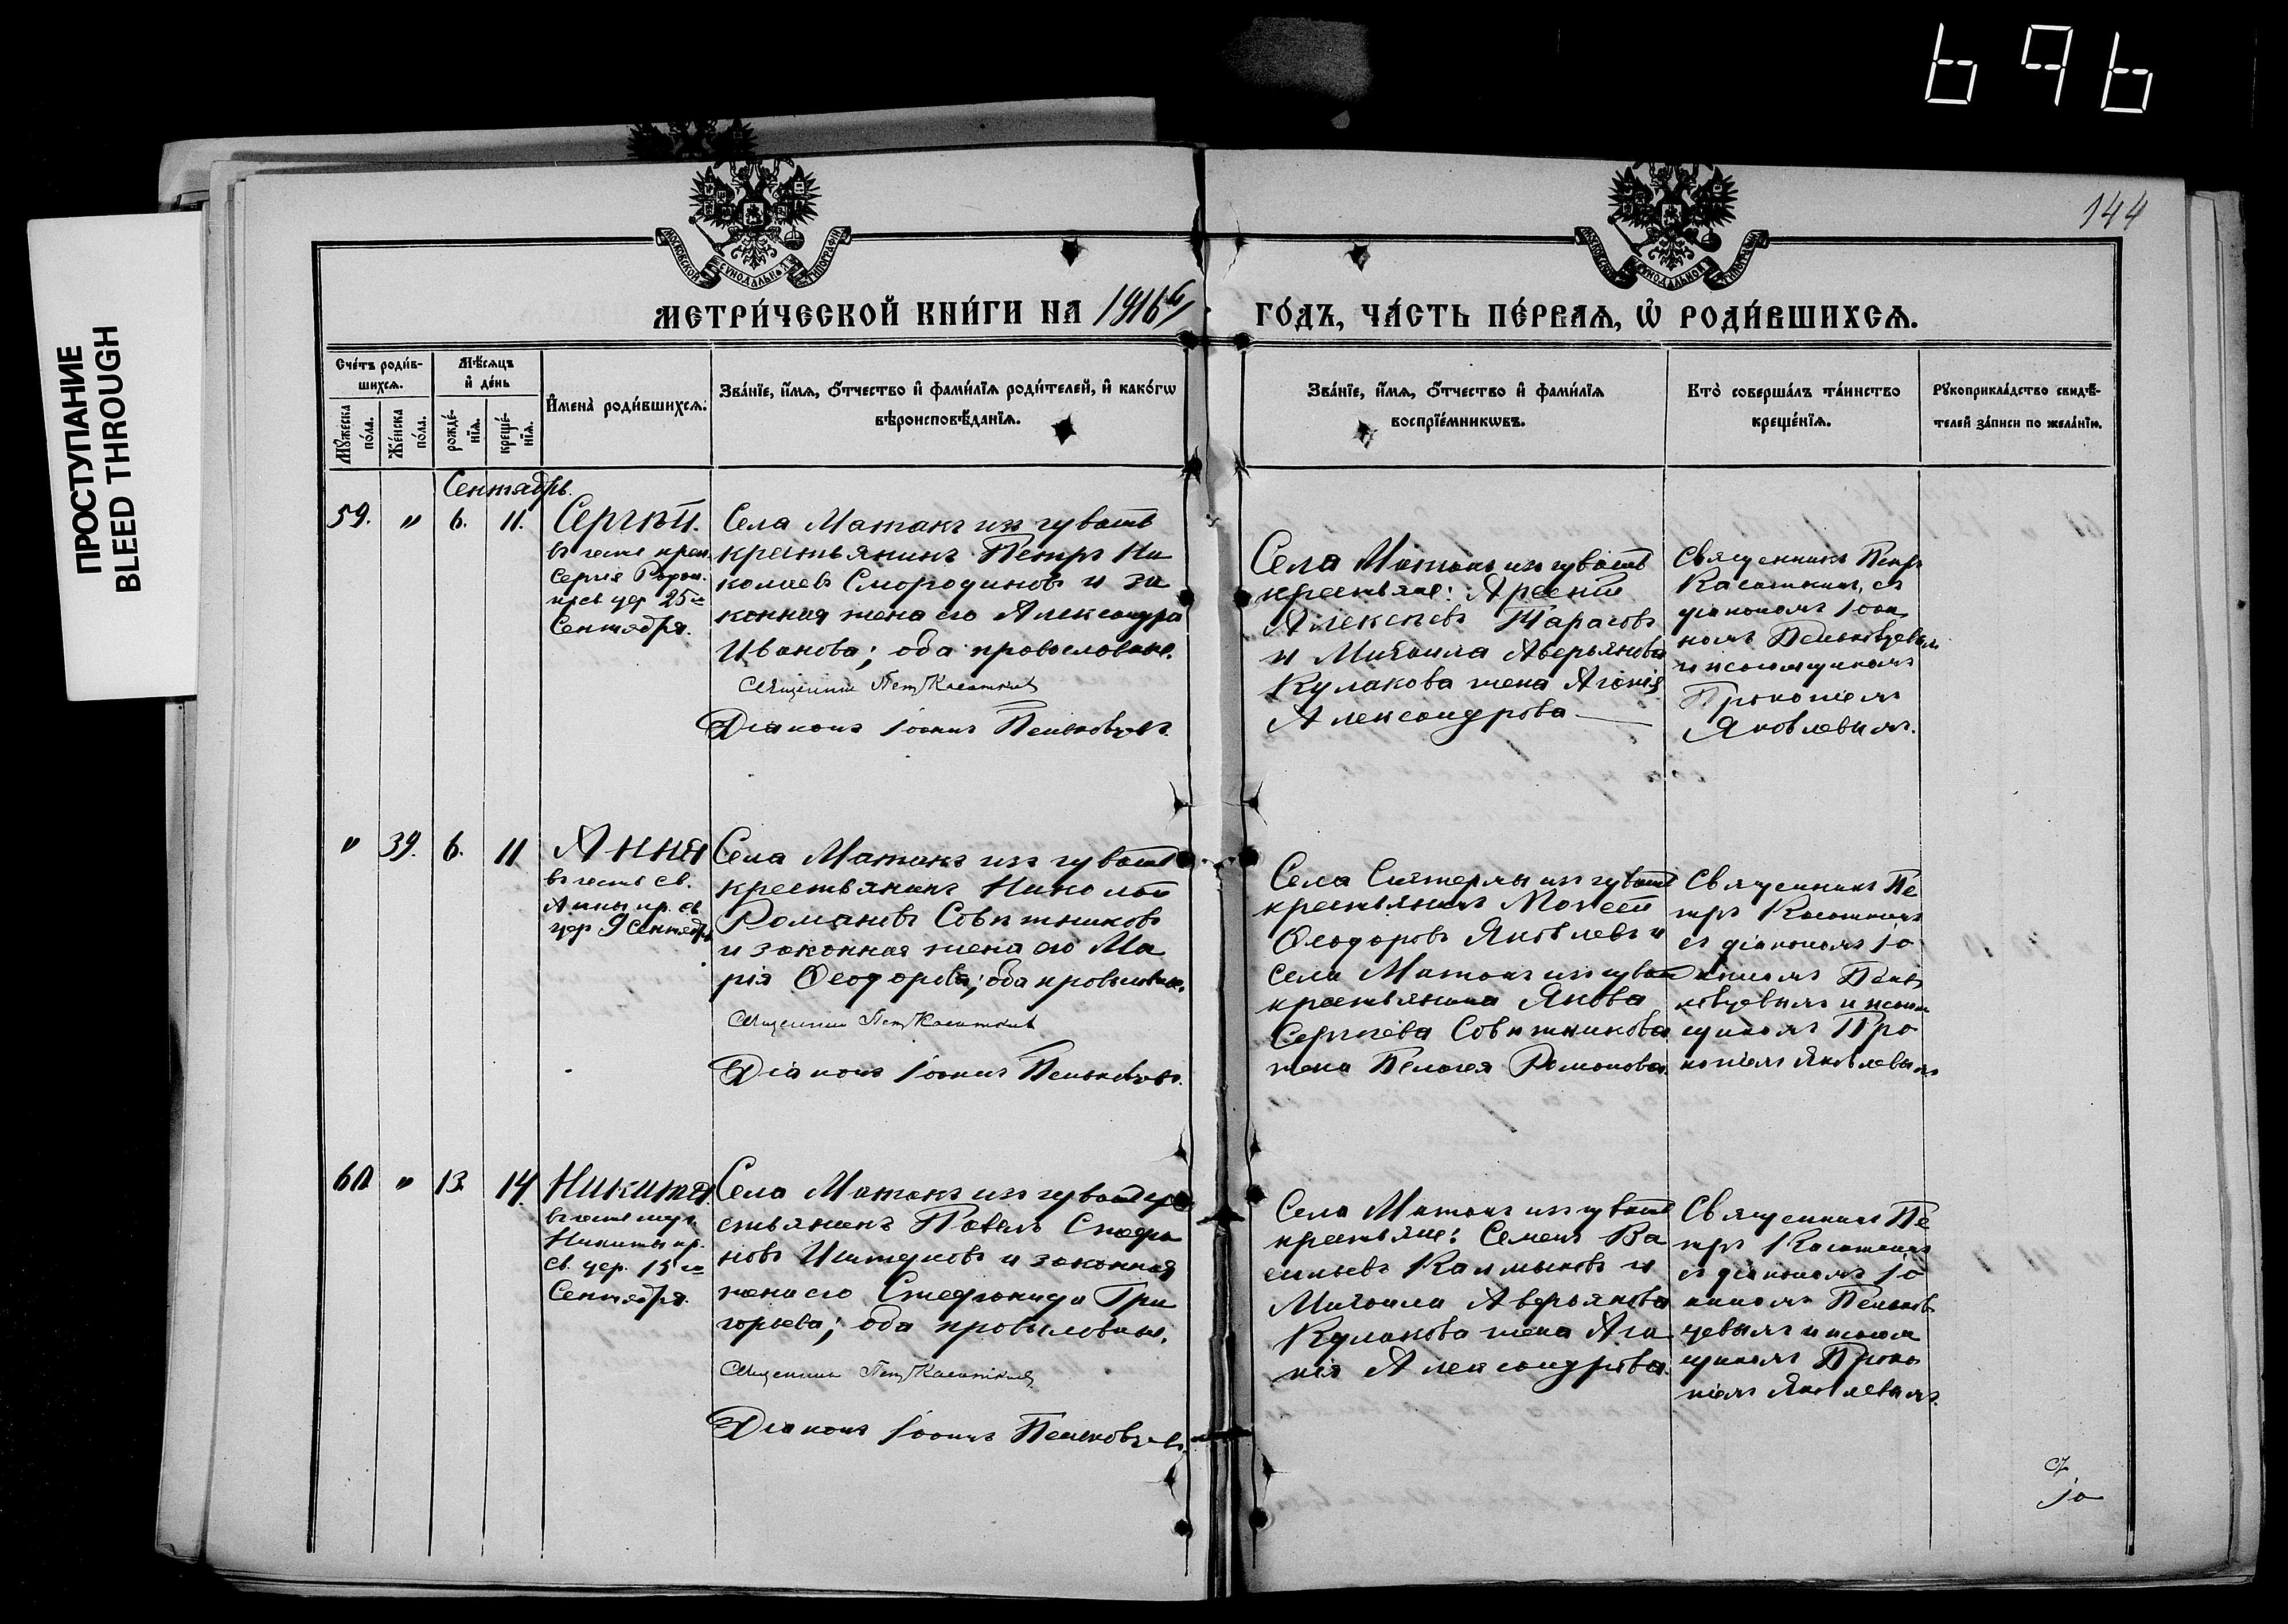 696
ПРОСТУПАНИЕ
BLEED THROUGH
144
МОСКОВСКОЙ СѴНОДАЛЬНОЙ ТИПОГРАФІИ
МОСКОВСКОЙ СѴНОДАЛЬНОЙ ТИПОГРАФІИ
МЕТРИ́ЧЕСКОЙ КНИ́ГИ НА 1916й ГО́ДЪ, ЧА́СТЬ ПЕ́РВАѦ, Ѡ҆ РОДИ́ВШИХСѦ.
Сче́тъ роди́в-
шихсѧ.
Мꙋ́жеска по́ла.
Же́нска по́ла.
Мѣ́сѧцъ
и҆ де́нь
рожде́-
нїѧ.
креще́-
нїѧ.
И҆мена̀ роди́вшихсѧ.
Зва́нїе, и҆́мѧ, ѻ҆́тчество и҆ фами́лїѧ роди́телей, и҆ како́гѡ
вѣроисповѣ́данїѧ.
Зва́нїе, и҆́мѧ, ѻ҆́тчество и҆ фами́лїѧ
воспрїе́мникѡвъ.
Кто̀ соверша́лъ та́инство
креще́нїѧ.
Рꙋкоприкла́дство свидѣ́-
телей за́писи по жела́нїю.
Сентябрь.
59. " 6. 11. Сергѣй.
въ честь преп.
Сергія Радон.
Сентября.
Села Матакъ изъ чувашъ
крестьянинъ Петръ Ни
колаевъ Смородиновъ и за
конная жена его Александра
Иванова; оба православные.
Священникъ Петръ Касаткинъ
Діаконъ Іоаннъ Пеньковцевъ.
Села Матакъ изъ чувашъ
крестьяне: Арсеній
Алексѣевъ Тарасовъ
и Михаила Аверьянова
Кулакова жена Агапія
Александрова
Священникъ Петръ
Касаткинъ, съ
діакономъ Іоан
номъ Пеньковцевымъ
и псаломщикомъ
Прокопіемъ
Яковлевымъ.
" 39. 6. 11 Анна
въ честь св.
Анны пр. св.
цер 9 Сентября
Села Матакъ изъ чувашъ
крестьянинъ Николай
Романовъ Совѣтниковъ
и законная жена его Ма
рія Ѳеодорова; оба православные.
Священникъ Петръ Касаткинъ
Діаконъ Іоаннъ Пеньковцевъ.
Села изъ чувашъ
крестьянинъ Моисей
Ѳеодоровъ Яковлевъ и
села Матакъ изъ чувашъ
крестьянина Якова
Сергѣева Совѣтникова
жена Пелагея Романова.
Священникъ Пе
тръ Касаткинъ
съ діакономъ Іо
анномъ Пень
ковцевымъ и псалом
щикомъ Про
копіемъ Яковлевымъ
60 " 13. 14. Никита.
въ честь муч.
Никиты пр.
св. цер. 15го
Сентября.
Села Матакъ изъ чувашъ кре
стьянинъ Павелъ Стефа
новъ и законная
жена его Стефанида Гри
горьева; оба православные.
Священникъ Петръ Касаткинъ
Діаконъ Іоаннъ Пеньковцевъ.
Села Матакъ изъ чувашъ
крестьяне: Семенъ Ва
сильевъ Калмыковъ и
Михаила Аверьянова
Кулакова жена Ага
пія Александрова.
Священникъ Пе
тръ Касаткинъ
съ діакономъ Іо
анномъ Пеньков
цевымъ и псалом
щикомъ Проко
піемъ Яковлевымъ.